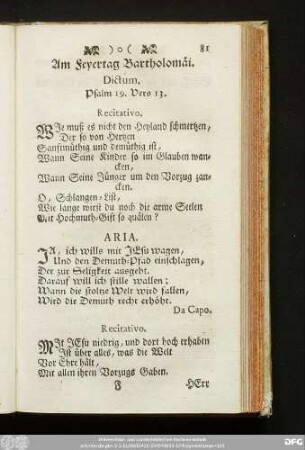 )o( 81
Am Feyertag Bartholomäi.
Dictum.
Psalm 19. Vers 13.
Recitativo.
WIe muß es nicht den Heyland schmertzen,
Der so von Hertzen
Sanftmüthig und demüthig ist,
Wann Seine Kinder so im Glauben wan-
cken,
Wann Seine Jünger um den Vorzug zan-
cken.
O, Schlangen-List,
Wie lange wirst du noch die arme Seelen
Mit Hochmuth-Gift so quälen?
ARIA.
JA, ich wills mit JEsu wagen,
Und den Demuth-Pfad einschlagen,
Der zur Seligkeit ausgeht.
Darauf will ich stille wallen;
Wann die stoltze Welt wird fallen,
Wird die Demuth recht erhöht.
Da Capo.
Recitativo.
MIt JEsu niedrig, und dort hoch erhaben
Ist über alles, was die Welt
Vor Ehre hält,
Mit allen ihren Vorzugs Gaben.
F HErr
DFG